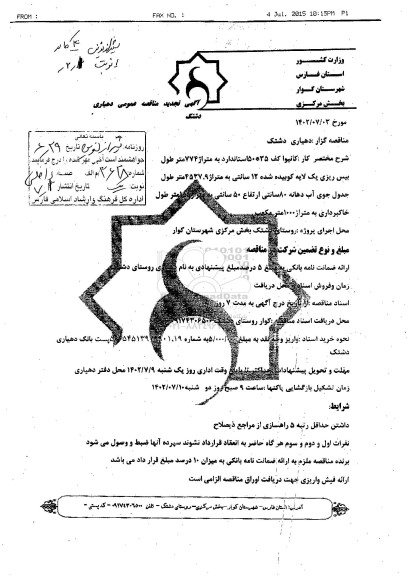 FROM : FAX NO. : 4 Jul. 2015 10:15PM P1
وزارت کشور
استان فارس
شهرستان کوار
بخش مرکزی
آگهی تجدید مناقصه عمومی دهیاری
دشتک
مورخ ۱۴۰۲/۰۷/۰۲
مناقصه گزار :دهیاری دشتک
شرح مختصر کار :کانیوا کف ۳۵*۵۰استاندارد به متراژ۷۷۴متر طول
بیس ریزی یک لایه کوبیده شده ۱۲ سانتی به متراژ۴۵۳۷.۹متر طول
جدول جوی آب دهانه ۸۰سانتی ارتفاع ۵۰ سانتی به متر طول
خاکبرداری به متراژ۱۰۰۰متر مکعب
محل اجرای پروژه :روستای دشتک بخش مرکزی شهرستان کوار
مبلغ و نوع تضمین شرکت در مناقصه
ارائه ضمانت نامه بانکی به مبلغ ۵ درصدمبلغ پیشنهادی به نام دهیاری روستای دشتک
زمان وفروش اسناد و محل دریافت
اسناد مناقصه :از تاریخ درج آگهی به مدت ۷ روز
محل دریافت اسناد مناقصه :کوار روستای
نحوه خرید اسناد :واریز وجه نقد به مبلغ به شماره پست بانک دهیاری
دشتک
مهلت و تحویل پیشنهادات وقت اداری روز یک شنبه ۱۴۰۲/۷/۹ محل دفتر دهیاری
زمان تشکیل بازگشایی پاکتها :ساعت ۹ صبح روز دو شنبه۱۴۰۲/۰۷/۱۰
شرایط:
داشتن حداقل رتبه ۵ راهسازی از مراجع ذیصلاح
نفرات اول و دوم و سوم هر گاه حاضر به انعقاد قرارداد نشوند سپرده آنها ضبط و وصول می شود
برنده مناقصه ملزم به ارائه ضمانت نامه بانکی به میزان ۱۰ درصد مبلغ قرار داد می باشد
ارائه فیش واریزی جهت دریافت اوراق مناقصه الزامی است
آدرس: استان فارس- شهرستان کوار-بخش مرکزی- روستای دشتک - تلفن ۰۹۱۷۴۳۰۶۵۰۰ - کدپستی -
باسمه تعالی
روزنامه تاریخ
خواهشمند است آگهی مهر شده را درج فرمایید
شماره م الف صفحه
نوبت تاریخ انتشار
اداره کل فرهنگ و ارشاد اسلامی فارس